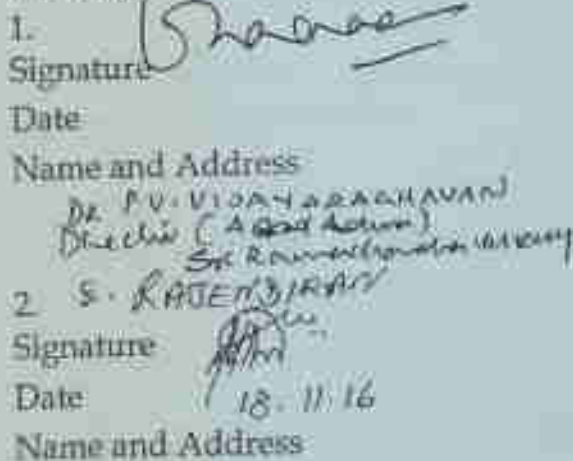 1.
Signature
Date
Name and Address
DR P.V. VIJAYARAGHAVAN
Director (
Sri Ramachandra
2 S. RAJENDIRAN
Signature
Date 18.11.16
Name and Address